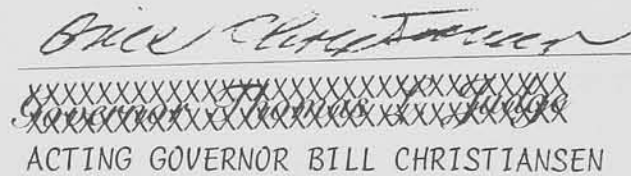 Bill Christiansen
Governor Thomas L. Judge
ACTING GOVERNOR BILL CHRISTIANSEN